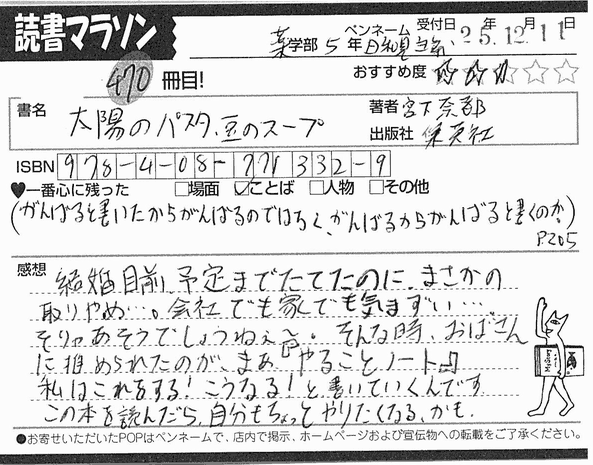 読書マラソン
薬学部 5年 ペンネーム 日和見当番 受付日 25年12月11日
470 冊目!
おすすめ度 ★★★☆☆
書名 太陽のパスタ、豆のスープ
著者 宮下奈都
出版社 集英社
ISBN 978-4-08-771332-9
♥一番心に残った □場面 ☑ことば □人物 □その他
(がんばると書いたからがんばるのではなく、がんばるからがんばると書くのか?)
P.205
感想
結婚目前、予定までたてたのに、まさかの
取りやめ…。会社でも家でも気まずい…
そりゃあそうでしょうねぇ〜。そんな時、おばさん
に進められたのが、まぁ「やることノート」♫
私はこれをする!こうなる!と書いていくんです
この本を読んだら、自分もちょっとやりたくなる、かも.
●お寄せいただいたPOPはペンネームで、店内で掲示、ホームページおよび宣伝物への転載をご了承ください。